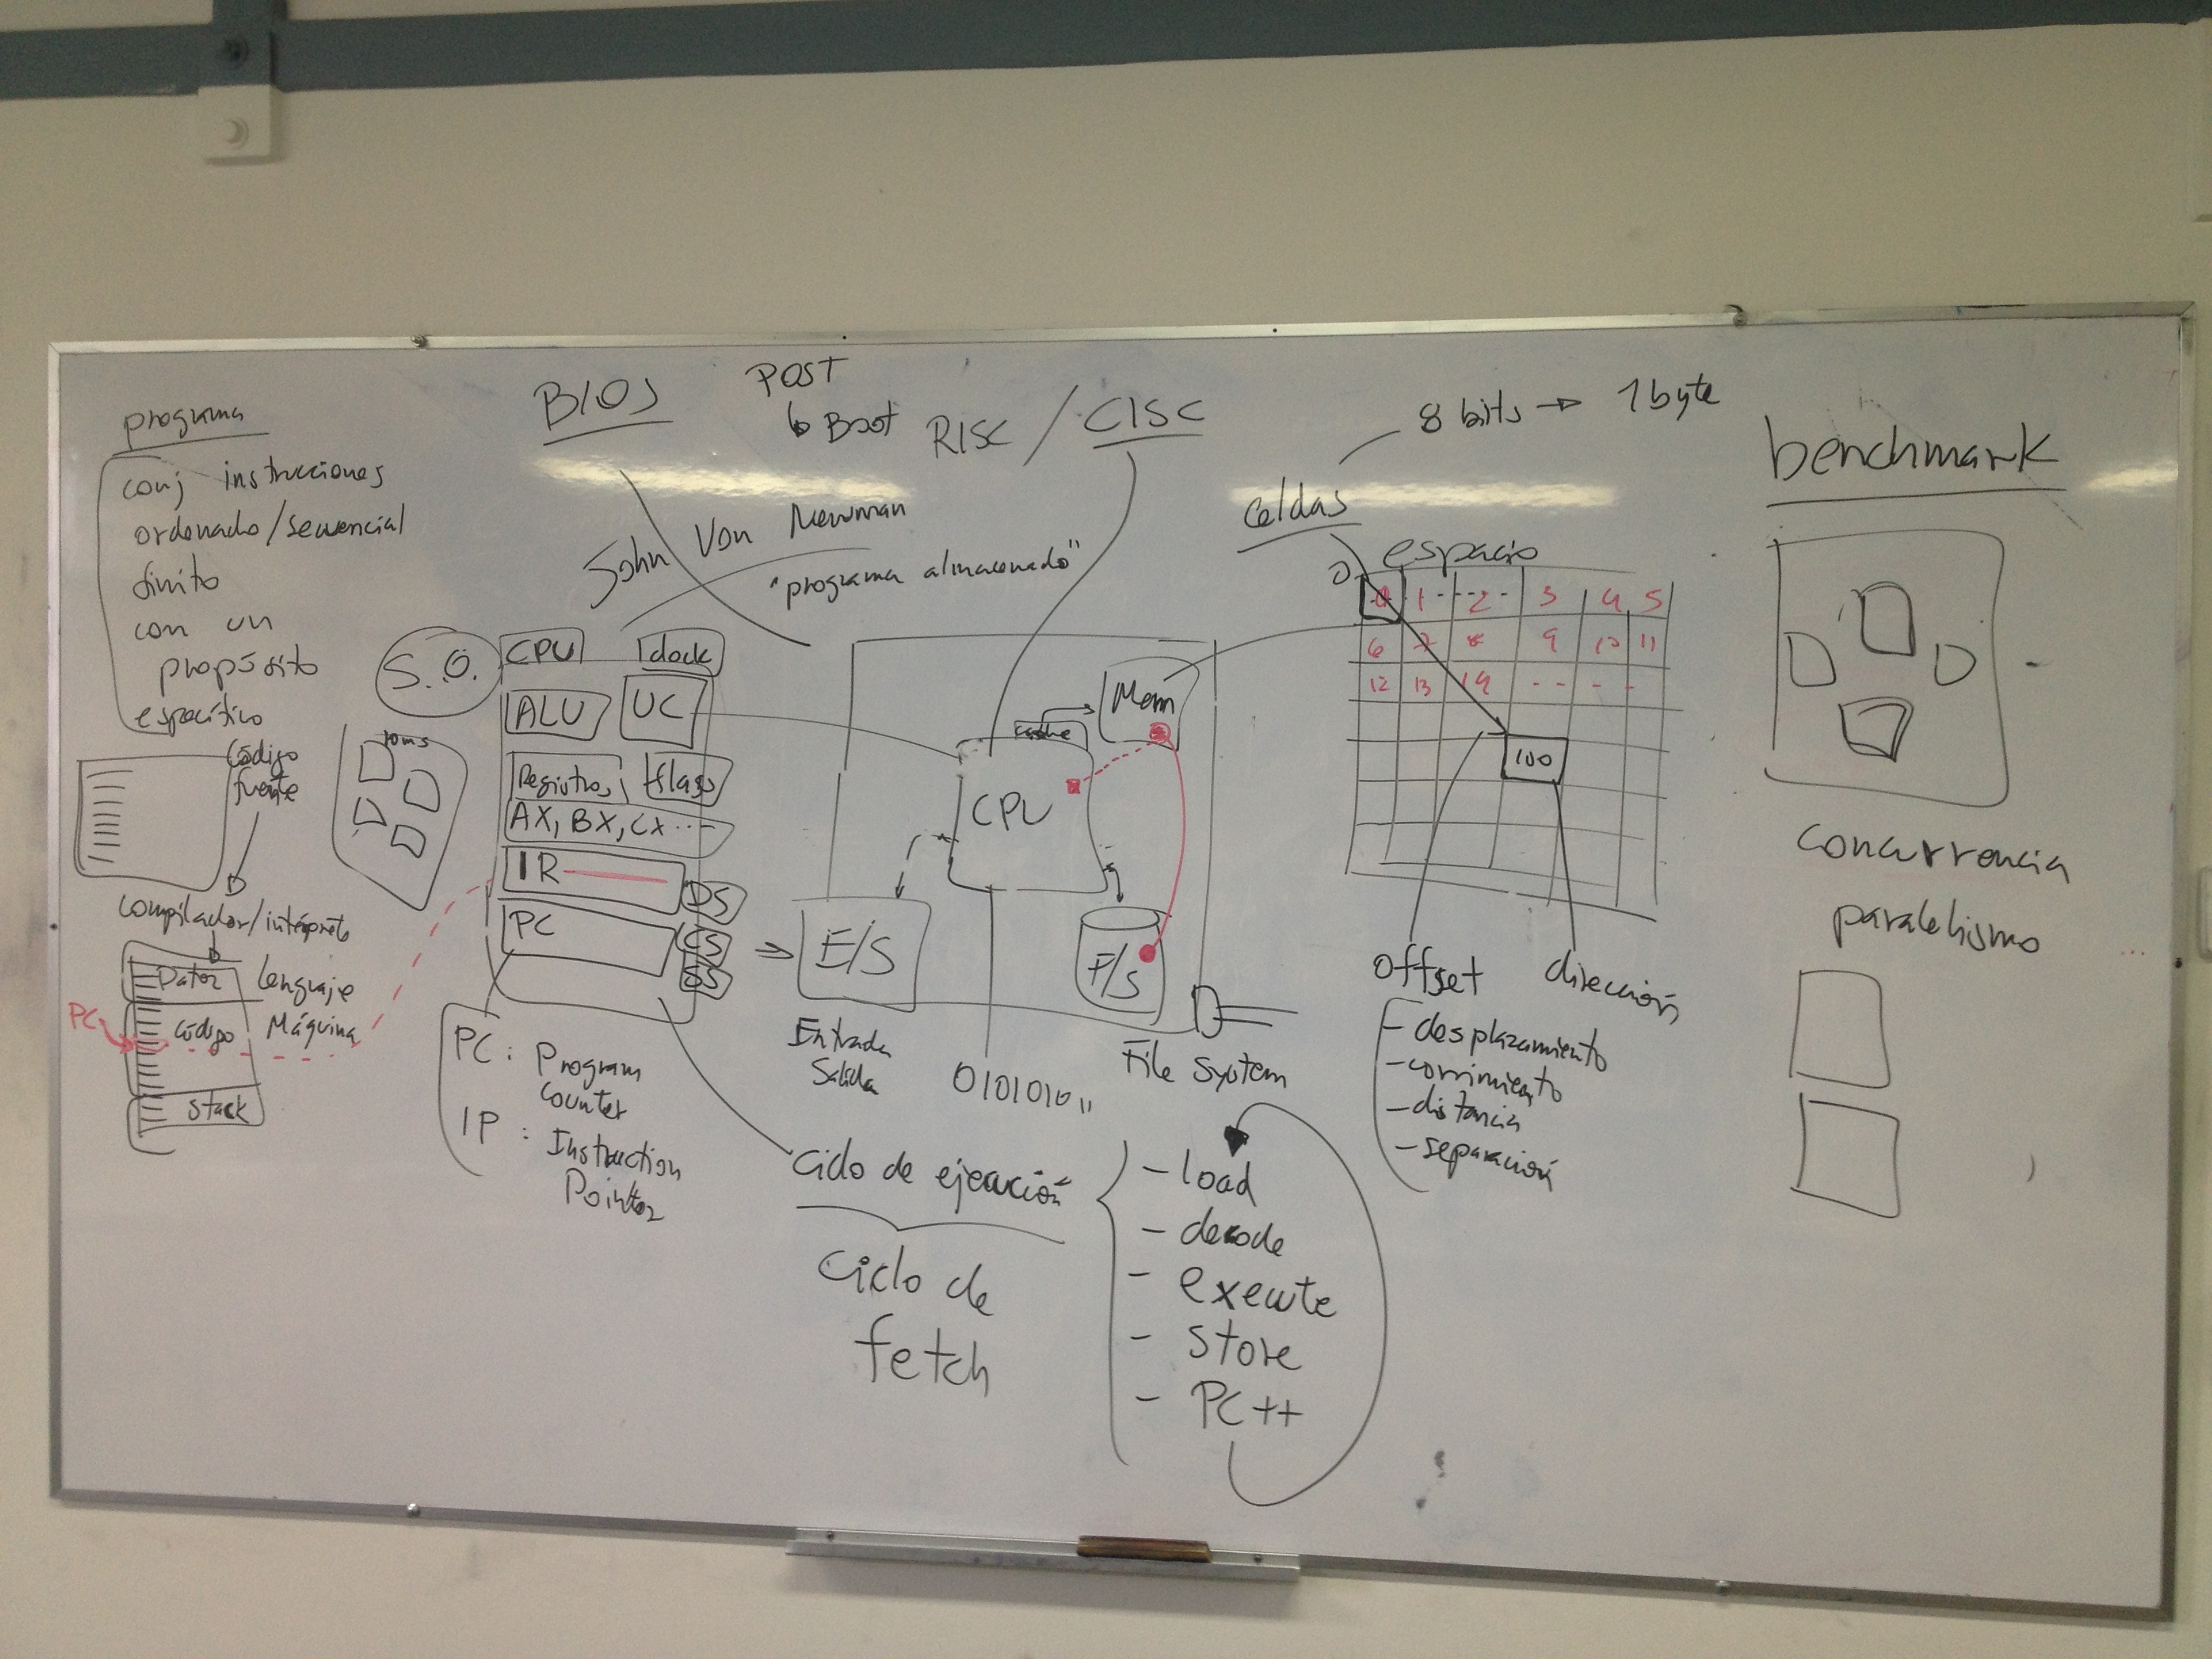 programa
conj instrucciones
ordenado/secuencial
finito
con un
propósito
específico
código
fuente
compilador/intérprete
Datos
lenguaje
PC
código
Máquina
stack
S.O.
10ms
BIOS
POST
Boot
RISC / CISC
John Von Newman
"programa almacenado"
CPU
clock
ALU
UC
Registros
flags
AX, BX, CX ...
IR
DS
PC
CS
SS
PC: Program
Counter
IP : Instruction
Pointer
Mem
cache
CPU
E/S
F/S
Entrada
Salida
01010101
File System
ciclo de ejecución
ciclo de
fetch
- load
- decode
- execute
- store
- PC++
8 bits → 1 byte
celdas
espacio
0
0 1 - - 2 - - 3 4 5
6 7 8 9 10 11
12 13 14 - - - -
100
offset
dirección
- desplazamiento
- corrimiento
- distancia
- separación
benchmark
concurrencia
paralelismo